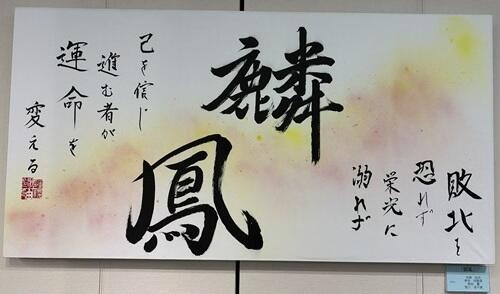 敗北を
恐れず
栄光に
溺れず
麟
鳳
己を信じ
進む者が
運命を
変える